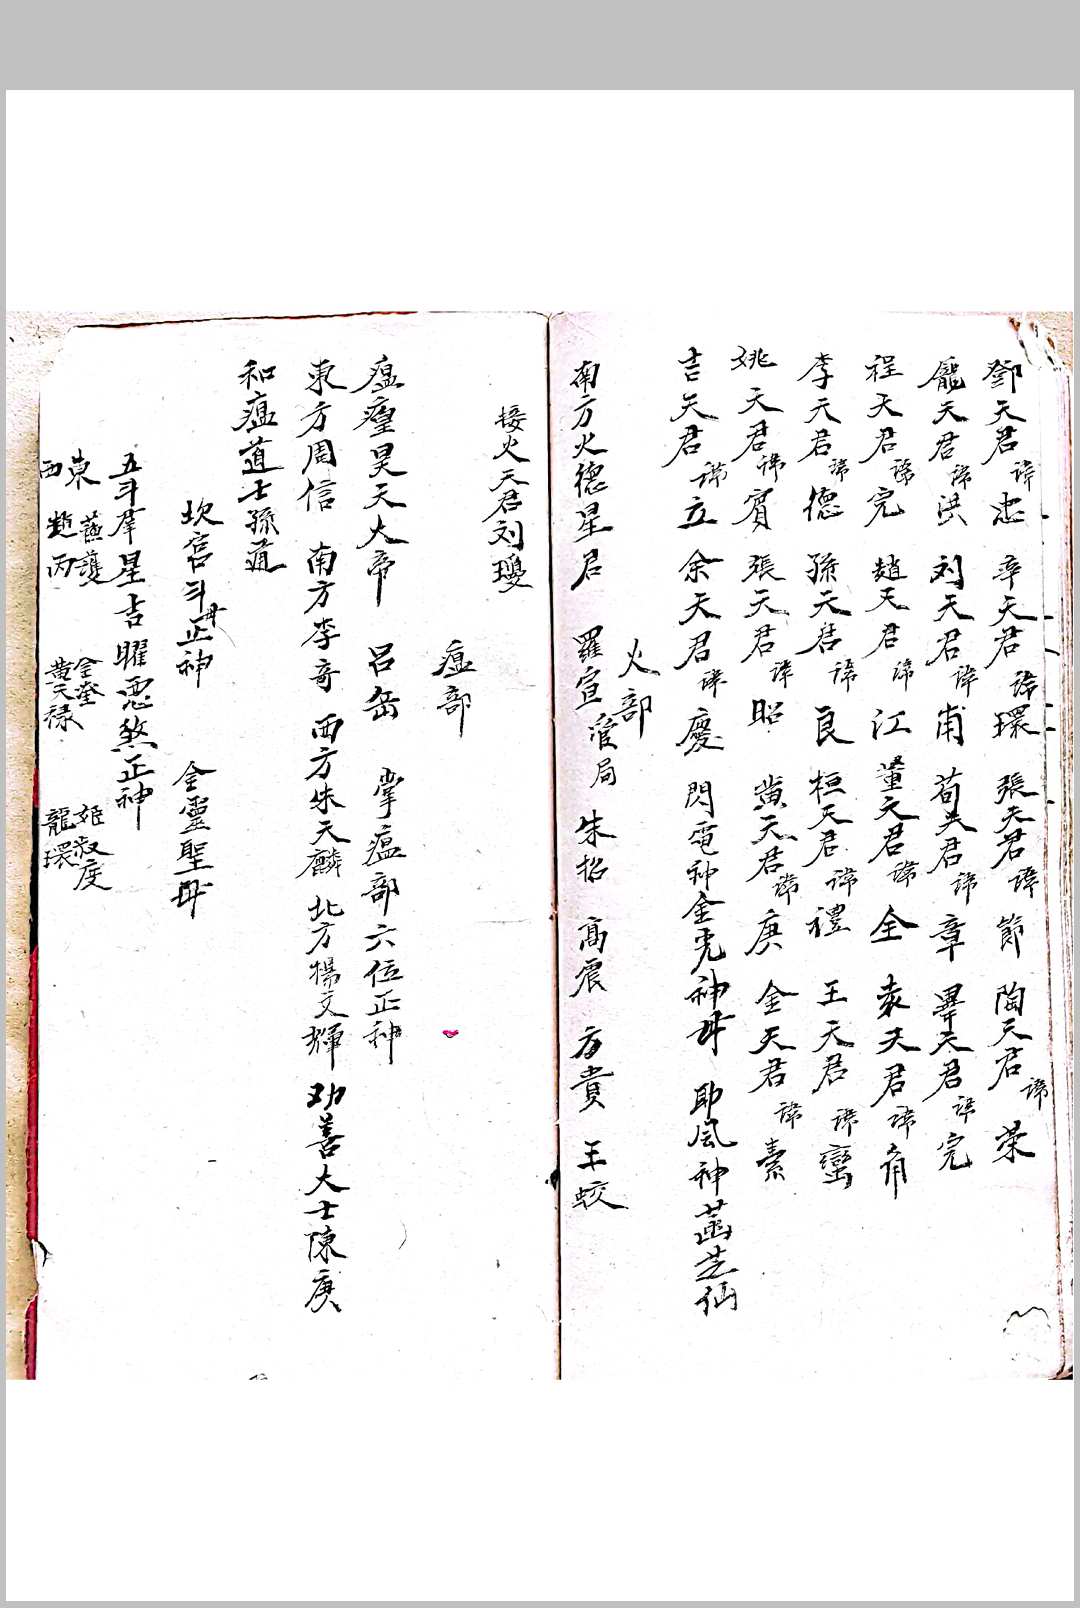 鄧天君諱忠 辛天君諱環 張天君諱節 陶天君諱荣
龐天君諱洪 刘天君諱甫 荀天君諱章 畢天君諱完
程天君諱完 趙天君諱江 董天君諱全 袁天君諱角
李天君諱德 孫天君諱良 桓天君諱禮 王天君諱蠻
姚天君諱賓 張天君諱昭 黄天君諱庚 金天君諱素
吉天君諱立 余天君諱慶 閃電神金光神母 助风神菡芝仙
火部
南方火德星君 羅宣 管局 朱招 高震 方貴 王蛟
接火天君刘瓊
瘟部
瘟瘟昊天大帝 吕岳 掌瘟部六位正神
東方周信 南方李奇 西方朱天麟 北方楊文輝 劝善大士陳庚
和瘟道士孫道
坎宫斗母正神 金靈聖母
五斗羣星吉曜惡煞正神
東 蘇護 金奎 姬叔度
西 趙丙 黄天禄 龍環